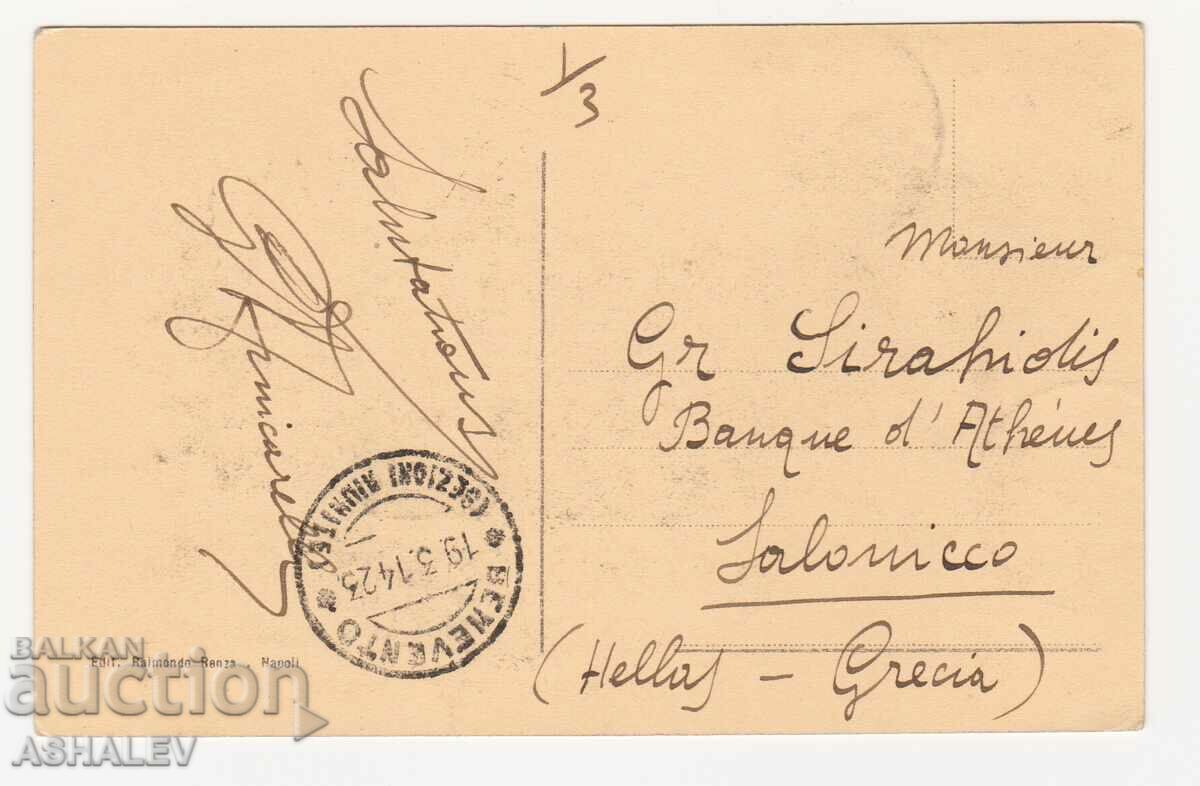 1/3
Salutations
Monsieur
Gr Sirapidis
Banque d'Athénes
Salonicco
(Hellas - Grecia)
(SEZIONI RIUNITE)
* BENEVENTO *
19.3.14 23
Edit. Raimondo Renza - Napoli
BALKAN
auction
ASHALEV